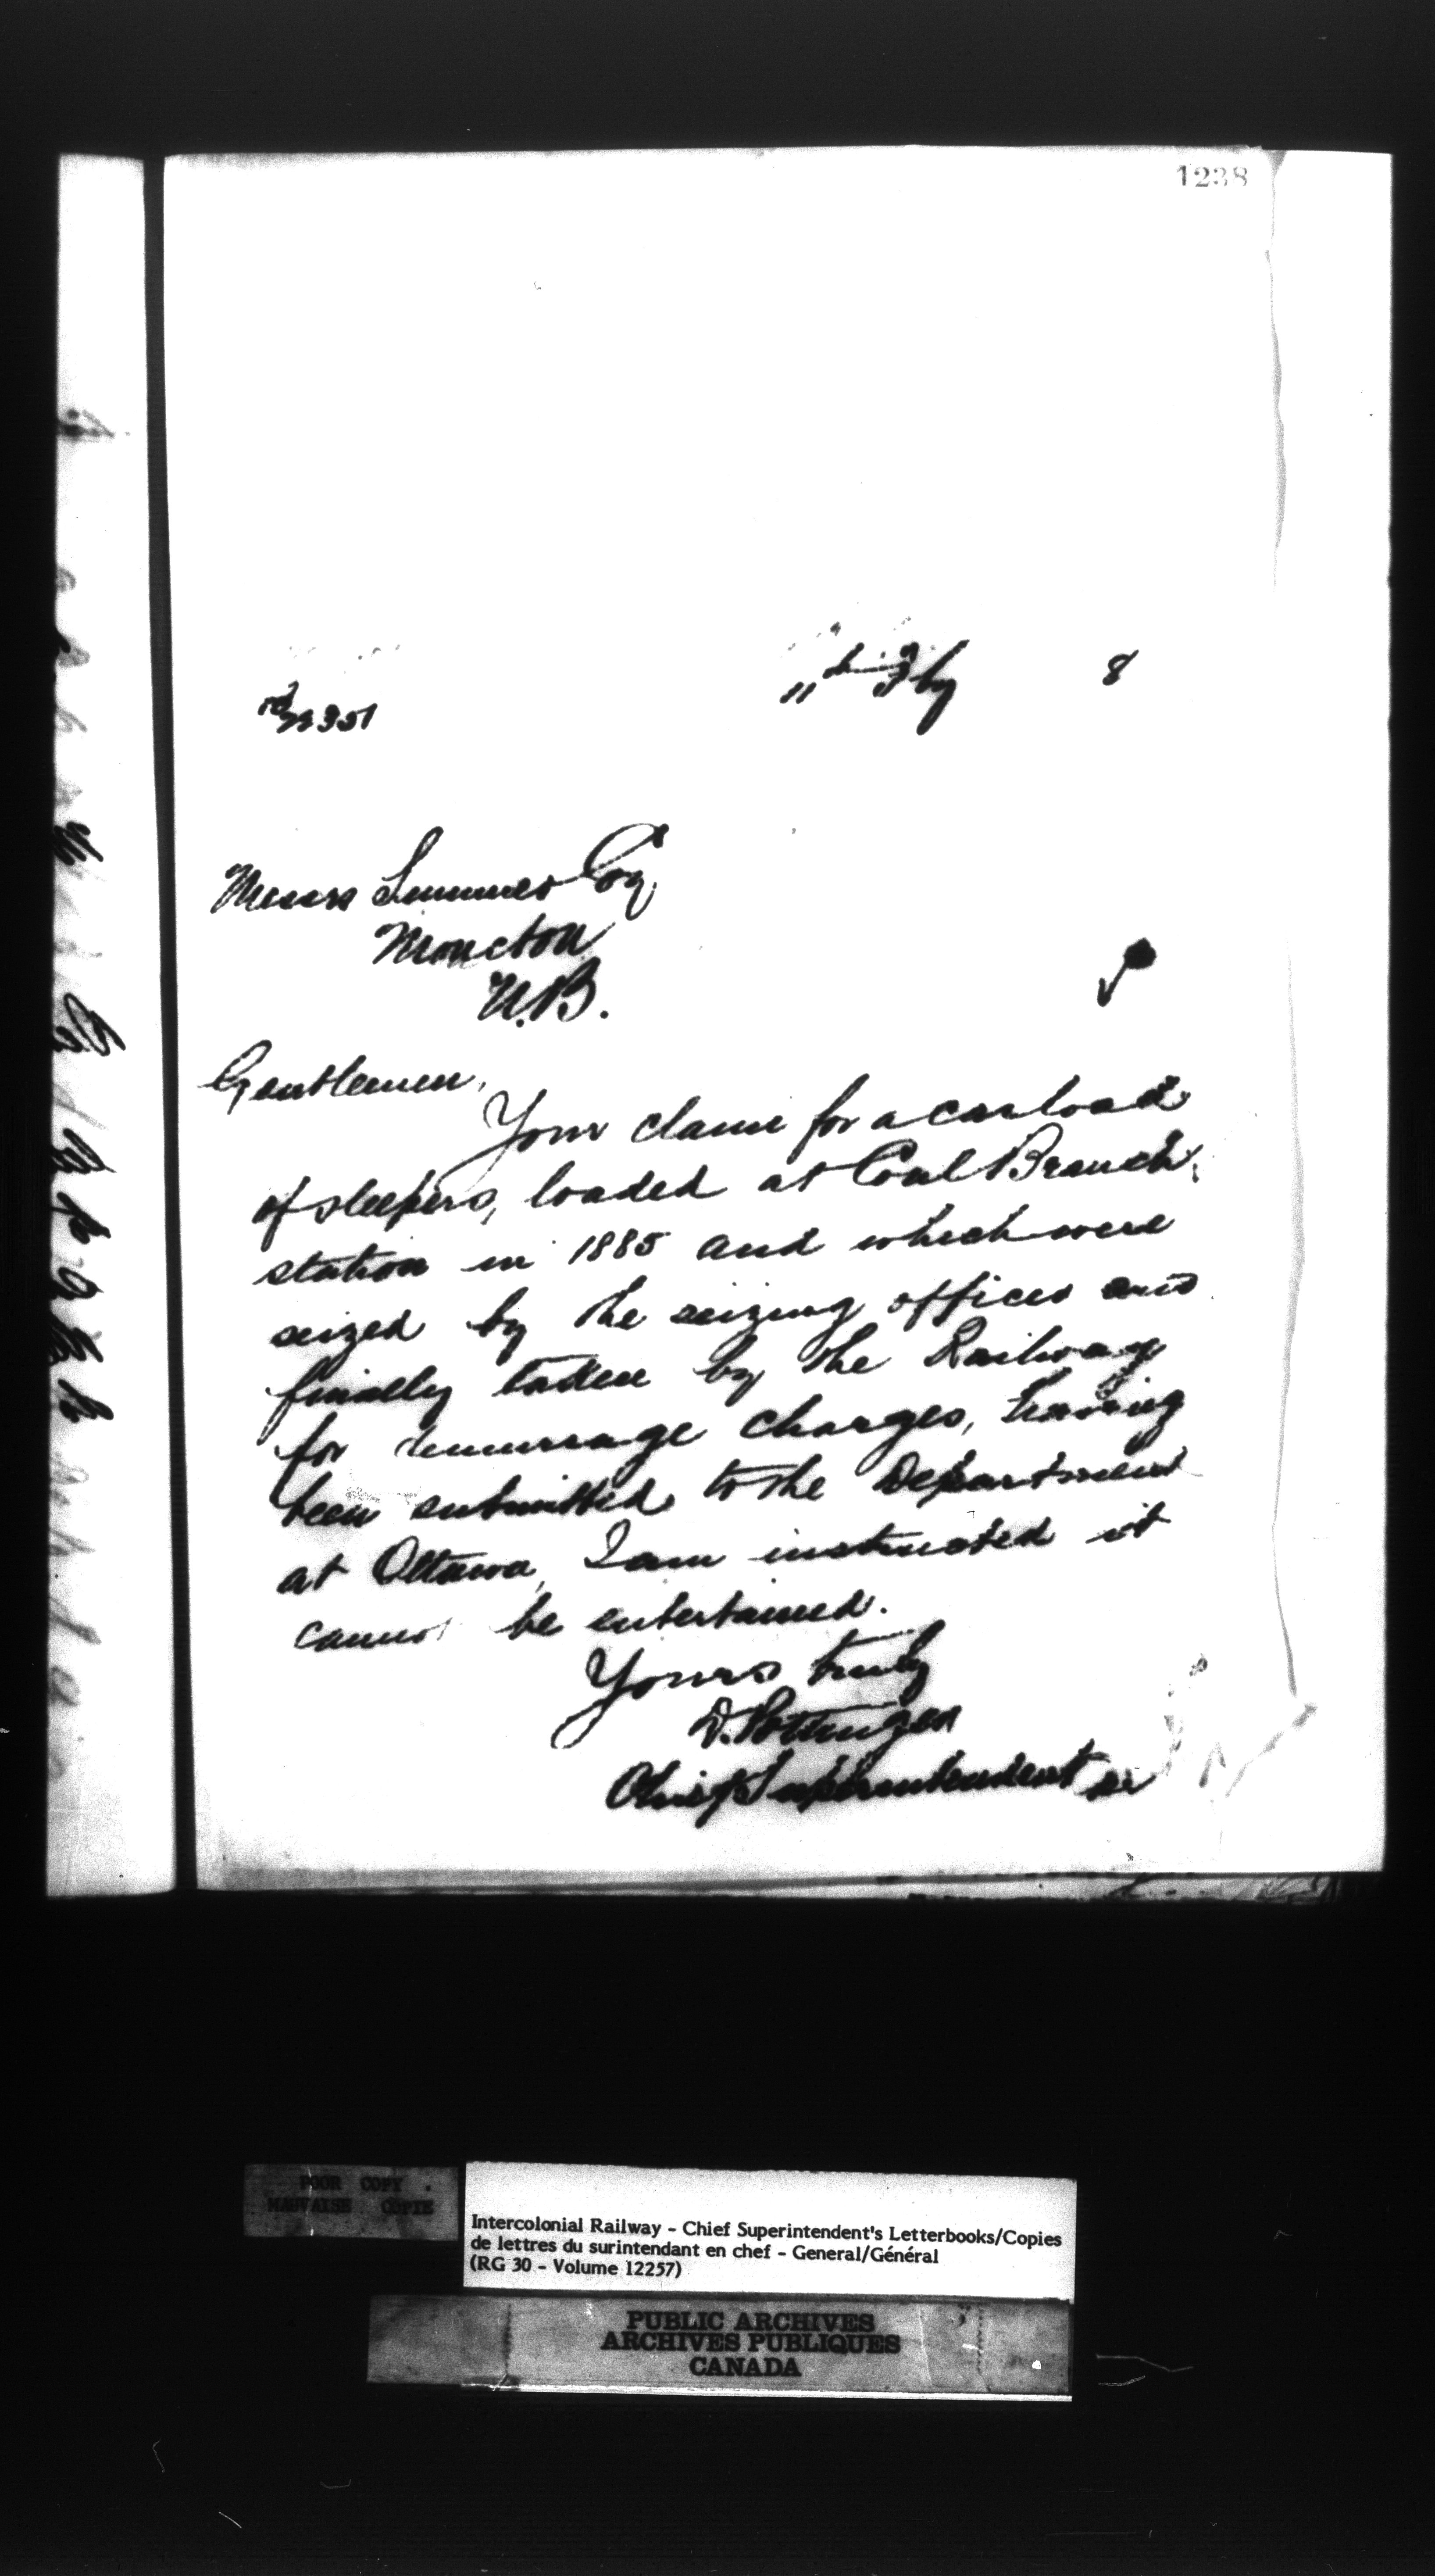 1238
11th Feby 8
Messrs Sumner Coy
Moncton
N.B.
Gentlemen,
Your claim for a carload
of sleepers, loaded at Coal Branch
station in 1885 and which were
seized by the seizing officer and
finally taken by the Railway
for demurrage charges, having
been submitted to the Department
at Ottawa, I am instructed it
cannot be entertained.
Yours truly
D. Pottinger
Chief Superintendent
POOR COPY
MAUVAISE COPIE
Intercolonial Railway - Chief Superintendent's Letterbooks/Copies
de lettres du surintendant en chef - General/Général
(RG 30 - Volume 12257)
PUBLIC ARCHIVES
ARCHIVES PUBLIQUES
CANADA